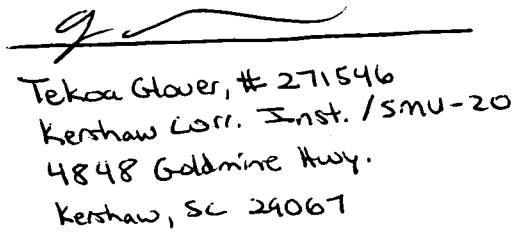 Tekoa Glover, # 271546
Kershaw Corr. Inst. /SMU-20
4848 Goldmine Hwy.
Kershaw, SC 29067